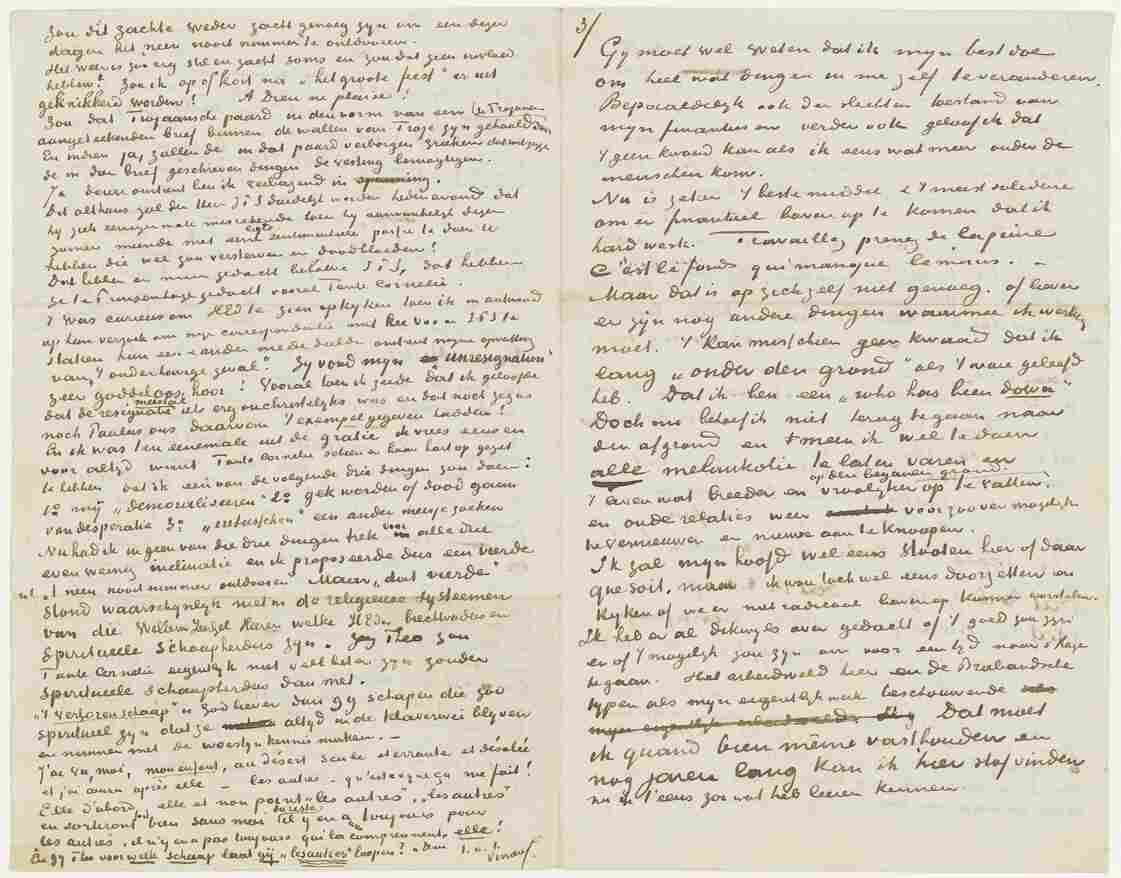 Zou dit zachte weder zacht genoeg zyn om een dezer
dagen het neen nooit nimmer te ontdooien.
Het weer is zoo erg stil en zacht soms en zou dat geen invloed
hebben? Zou ik op of kort na „het groote feest" er uit
geknikkerd worden! A Dieu ne plaise!
Zou dat Trojaansche paard in den vorm van een
aangeteekenden brief binnen de wallen van Troje zyn gehaald
En indien ja, zullen de in dat paard verborgen
de in den brief geschreven dingen de vesting bemagtigen.
Ja dienomtrent ben ik verbazend in spanning.
Dit althans zal den Heer J P S duidelyk worden heden avond dat
hy zich eenigermate misrekende toen hy aanvankelyk dezen
zomer meende met eene sentimenteele passie te doen te
hebben die wel zou versterven en doodbloeden!
Dat hebben er meer gedacht behalve J P S, dat hebben
ze te Prinsenhage gedacht vooral Tante Cornelie.
't Was curieus om HEd te zien opkyken toen ik in antwoord
op hun verzoek om myn correspondentie met Kee Vos en J P S te
staken hun een & ander mededeelde omtrent myne opvatting
van „'t onderhavige geval". Zy vond myn „unresignation"
zeer goddeloos hoor! Vooral toen ik zeide dat ik geloofde
dat de resignatie meestal iets erg onchristelyks was en dat noch Jezus
noch Paulus ons daarvan 't exempel gegeven hadden!
En ik was ten eenemale uit de gratie ik vrees eeuw en
voor altyd want Tante Cornelie scheen er haar hart op gezet
te hebben dat ik een van de volgende drie dingen zou doen:
1o my „demoraliseeren" 2o gek worden of dood gaan
van desperatie 3o „endaschon" een ander meisje zoeken
Nu had ik in geen van die drie dingen trek voor alle drie
even weinig inclinatie en ik proposeerde dus een vierde
nl. 't neen nooit nimmer ontdooien. Maar „dat vierde"
stond waarschynlyk niet in de religieuse systeemen
van die Welein Heeren welke HEds biechtvaders en
spiritueele schaapherders zyn. Zeg Theo zou
Tante Cornelie eigenlyk niet veel beter zyn zonder
spiritueele schaapherders dan met.
„'t Verloren schaap" is God liever dan 99 schapen die zoo
spiritueel zyn dat ze altyd in de klaverwei blyven
en nimmer met de woestyn kennis maken. —
J'ai vu, moi, mon enfant, au désert seule et errante et désolée
et j'ai couru après elle — les autres — qu'est ce que ça me fait!
Elle d'abord, elle et non point „les autres", „les autres"
en sortiront bien sans moi du reste il y en a toujours pour
les autres, il n'y en a pas toujours qui la comprennent elle!
En gy Theo voor welk schaap laat gy „les autres" loopen? Adieu t. à. t.
Vincent.
3/
Gy moet wel weten dat ik myn best doe
om heel wat dingen in me zelf te veranderen.
Bepaaldelyk ook den slechten toestand van
myn finantien en verder ook geloof ik dat
't geen kwaad kan als ik eens wat meer onder de
menschen kom.
Nu is zeker 't beste middel & 't meest soliedere
om er finantieel boven op te komen dat ik
hard werk. Travaillez prenez de la peine
C'est le fonds qui manque le moins. —
Maar dat is op zich zelf niet genoeg. of liever
er zyn nog andere dingen waarmee ik werken
moet. 't Kan misschien geen kwaad dat ik
lang „onder den grond" als 't ware geleefd
heb. Dat ik ben een „who has been down"
Doch nu behoef ik niet terug te gaan naar
den afgrond en meen ik wel te doen
alle melankolie te laten varen en
't leven wat breeder en vroolyker op te vatten.
op den beganen grond.
en oude relaties weer voor zoover mogelyk
te vernieuwen en nieuwe aan te knoopen.
Ik zal myn hoofd wel eens stooten hier of daar
que soit, maar ik wou toch wel eens doorzetten en
kyken of we er niet radicaal boven op kunnen
Ik heb er al dikwyls over gedacht of 't goed zou zyn
en of 't mogelyk zou zyn om voor een tyd naar s'Hage
te gaan. Het arbeidsveld hier en de Brabandsche
typen als myn eigentlyk werk beschouwende
Dat moet
ik quand bien même vasthouden en
nog jaren lang kan ik hier stof vinden
nu ik 't eens zoo wat heb leeren kennen